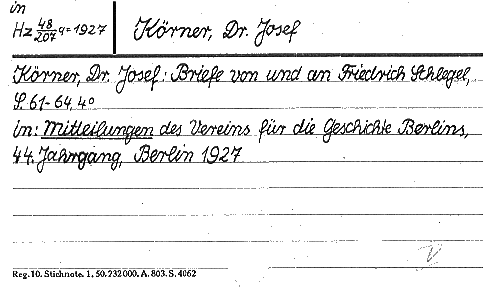 in
Hz 48/207 q=1927
Körner, Dr. Josef
Körner, Dr. Josef: Briefe von und an Friedrich Schlegel,
S. 61-64, 4°
in: Mitteilungen des Vereins für die Geschichte Berlins,
44. Jahrgang, Berlin 1927
V
Reg. 10. Stichnote. 1, 50. 232000. A. 803. S. 4062